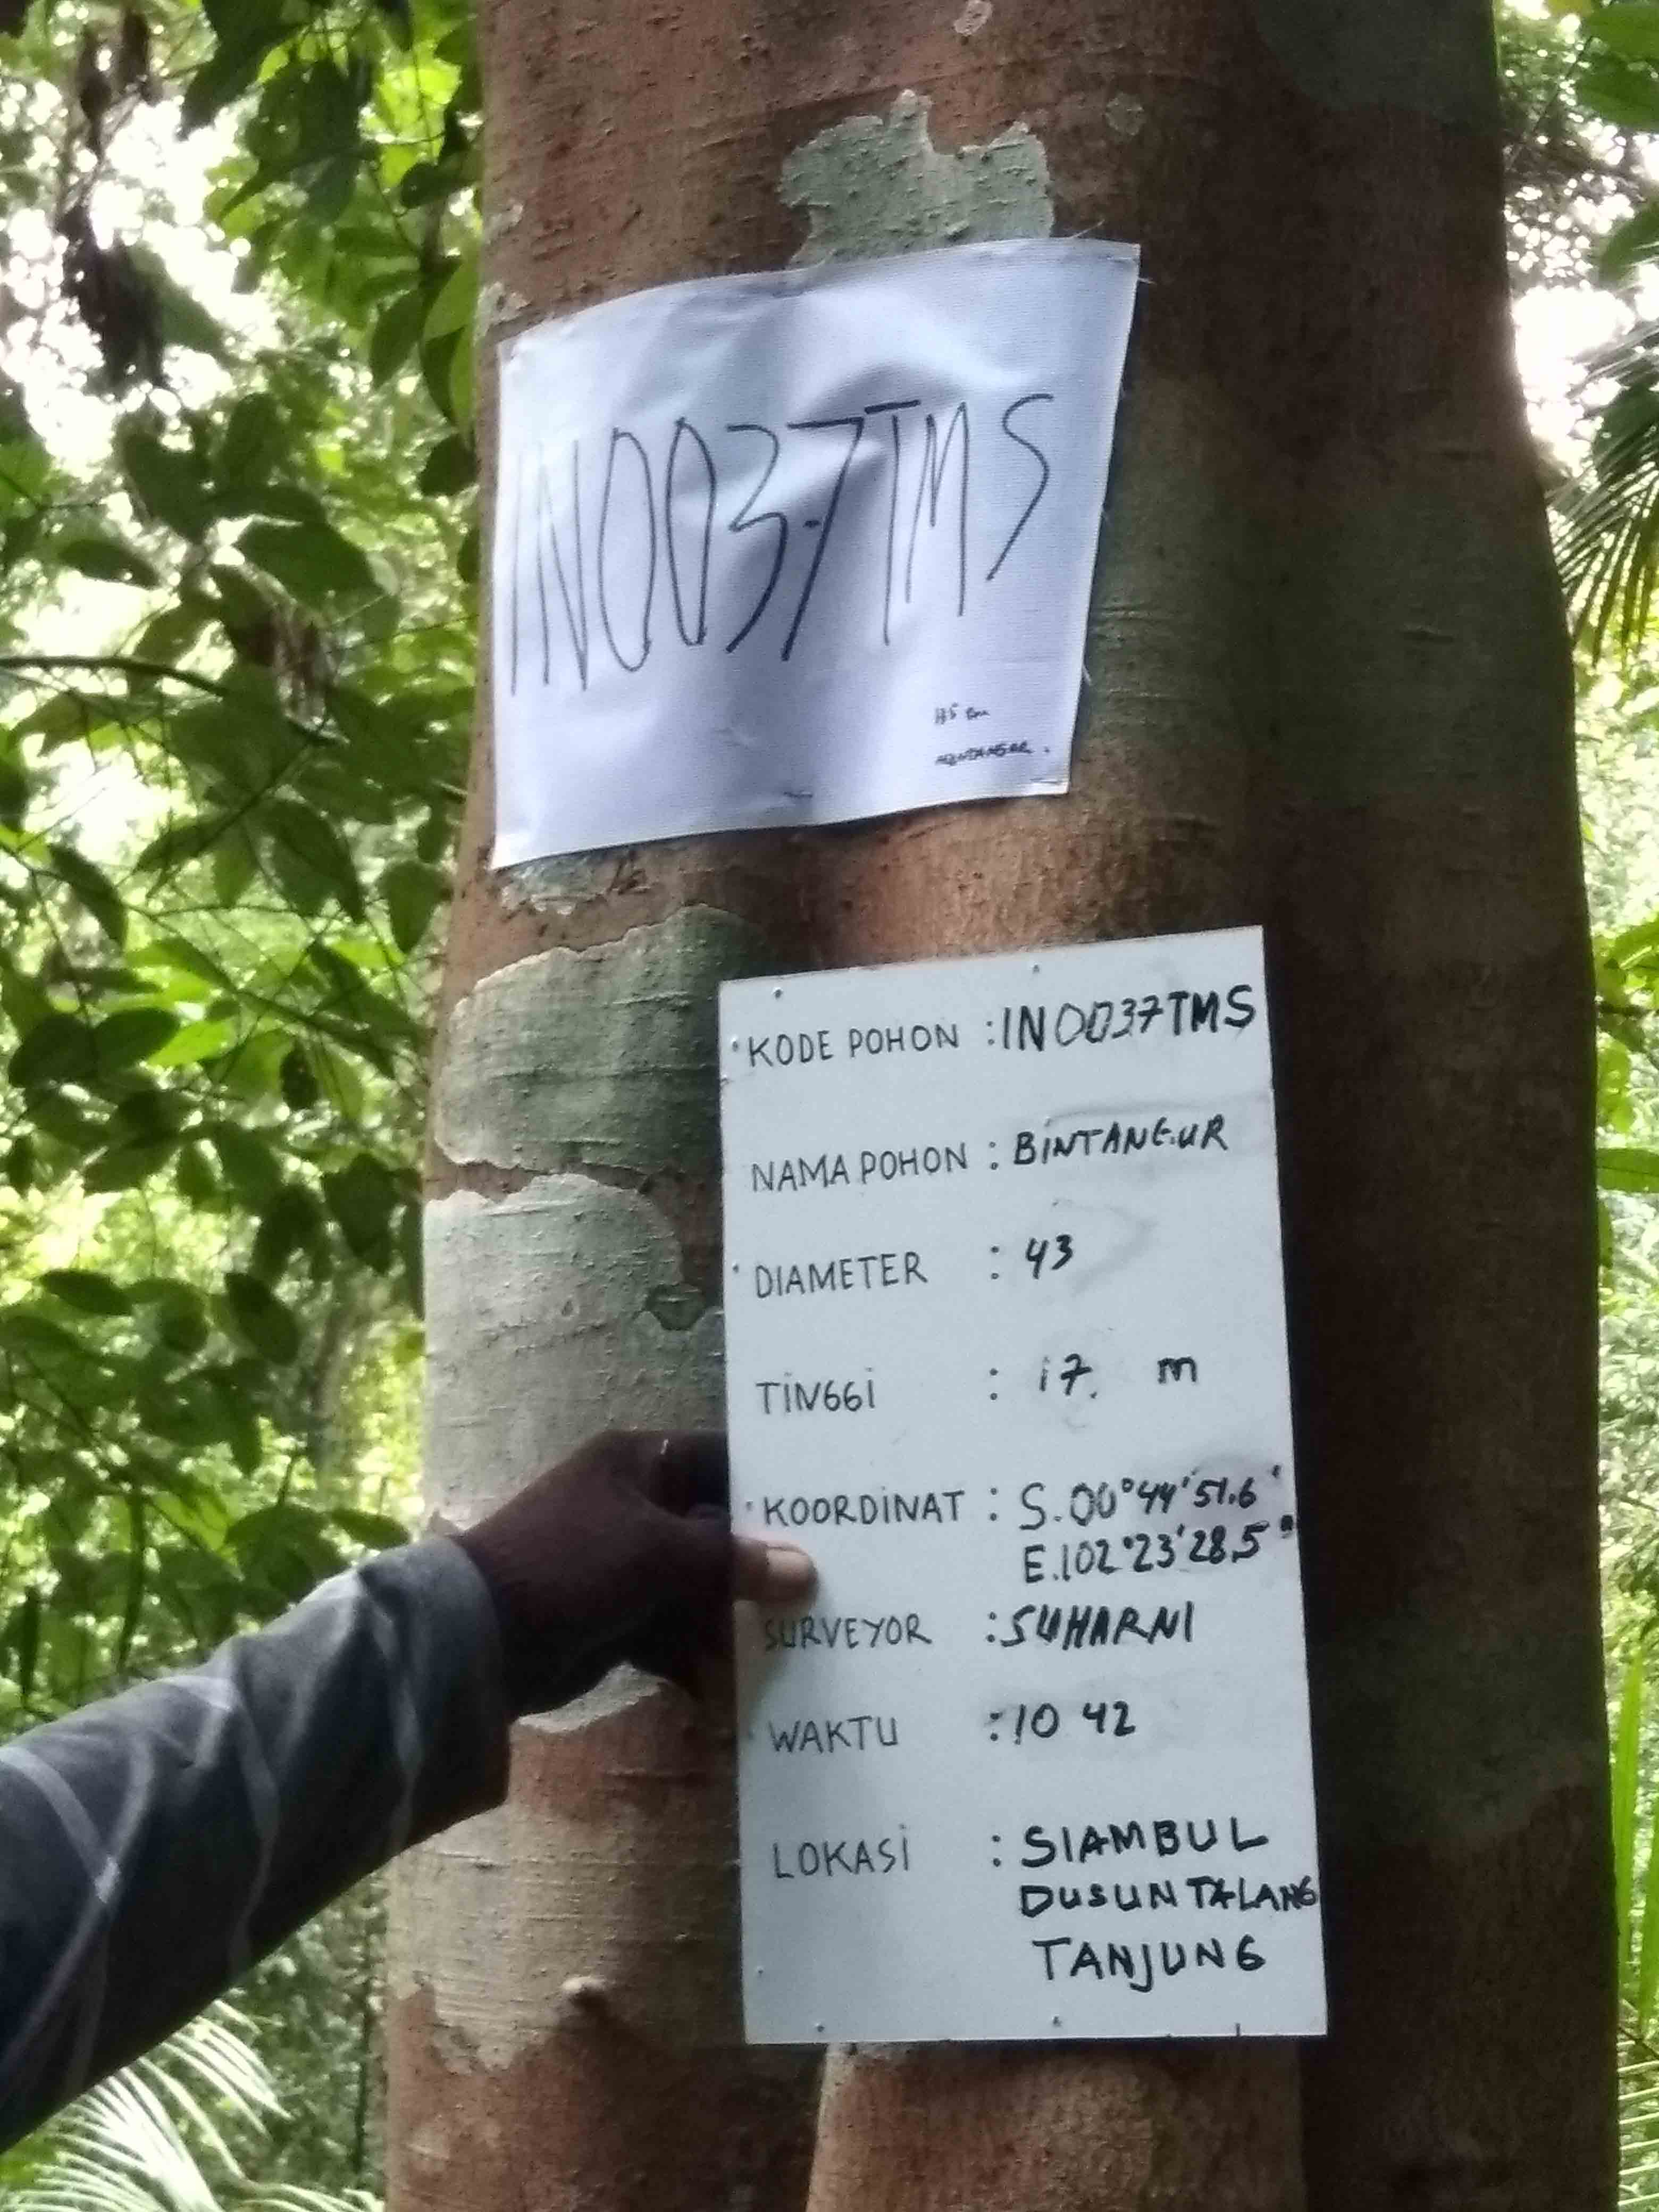 IN0037TMS
KODE POHON : IN0037TMS
NAMA POHON : BINTANGUR
DIAMETER : 43
TINGGI : 17. m
KOORDINAT : S.00°44'51.6'
E.102°23'28.5"
SURVEYOR : SUHARNI
WAKTU : 10 42
LOKASI : SIAMBUL
DUSUN TALANG
TANJUNG